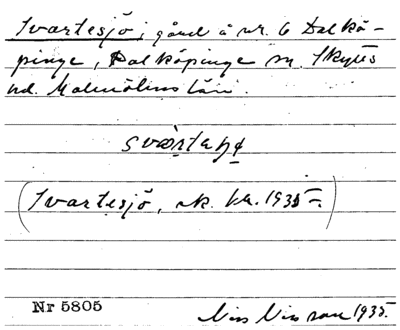 Svartesjö, gård å nr. 6 Dalkö-
pinge, Dalköpinge sn. Skytts
hd. Malmöhus län.
(Svartesjö, ek. ka. 1935.)
Nr 5805
Nils Nilsson 1935.